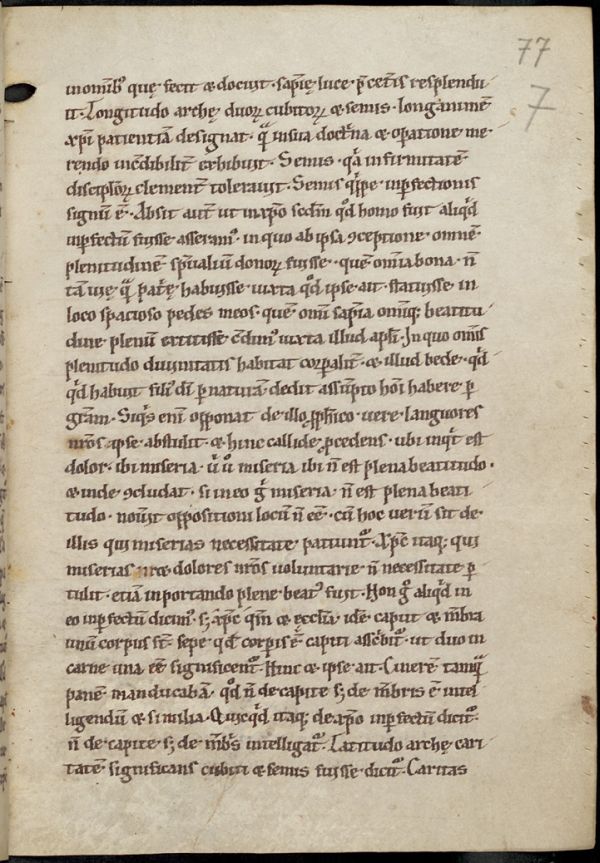 77
7
in omīb; quę fecit & docuit · sapīę luce p̄ cet̄is resplendu/
it · Longitudo archę duoꝝ cubitoꝝ & semis · longanimē
xp̄i patientiā designat · q̄ in sua doct̄na & operatione me/
rendo inc̄dibilit̄ exhibuit · Semis · q̄a infirmitatē
discipl̄oꝝ clement̄ tolerauit · Semis q̄ppe inꝑfectionis
signū ē · Absit aut̄ ut in xp̄o sc̄dm qd̓ homo fuit aliq̄d
inꝑfectū fuisse asseram᷒ · in quo ab ipsa ꝯceptione · omnē
plenitudinē sp̄ualiū donoꝝ fuisse · quē om̄ia bona · n̄
tā uię q̄ pat̄ę habuisse · iuxta qd̓ ipse ait · statuisse in
loco spacioso pedes meos · quē om̄i sapīa om̄iq; beatitu/
dine plenū extitisse c̄dim᷒ iuxta illud apl̄i · In quo om̄is
plenitudo diuinitatis habitat corꝑalit̄ · & illud bede · qd̓
qd̓ habuit fili᷒ dī ꝑ naturā dedit assūpto hoī habere ꝑ
gr̄am · Siq̄s enī opponat de illo ꝓph̄ico · uere · languores
nr̄os ipse abstulit · & hinc callide ꝓcedens · ubi inq̄t est
dolor · ibi miseria · ū u̓ miseria ibi n̄ est plena beatitudo ·
& inde ꝯcludat · si in eo ḡ miseria · n̄ est plena beati
tudo · nouit oppositioni locū n̄ eē · cū hoc uerū sit de/
illis qui miserias necessitate patiunt᷒ · Xp̄c itaq; qui
miserias nr̄ as dolores nr̄os uoluntarie n̄ necessitate ꝑ
tulit · etiā in portando plene beat᷒ fuit · Non ḡ aliq̄d in
eo inꝑfectū dicim᷒ · s; xp̄c qm̄ & ęccl̄ia idē caput & mēbra
unū corpus st̄ · sepe qd̓ corꝑis ē capiti asc̄bit᷒ · ut duo in
carne una eē significent᷒ · Hinc & ipse ait · Cinerē tamq̄
panē manducabā · qd̓ n̄ de capite s; de mēbris ē intel
ligendū & similia · Quicq̄d itaq; de xp̄o inꝑfectū dicit᷒ ·
n̄ de capite s; de mēb̄s intelligat᷒ · Latitudo archę cari/
tatē significans cubiti & semis fuisse dicit᷒ · Caritas